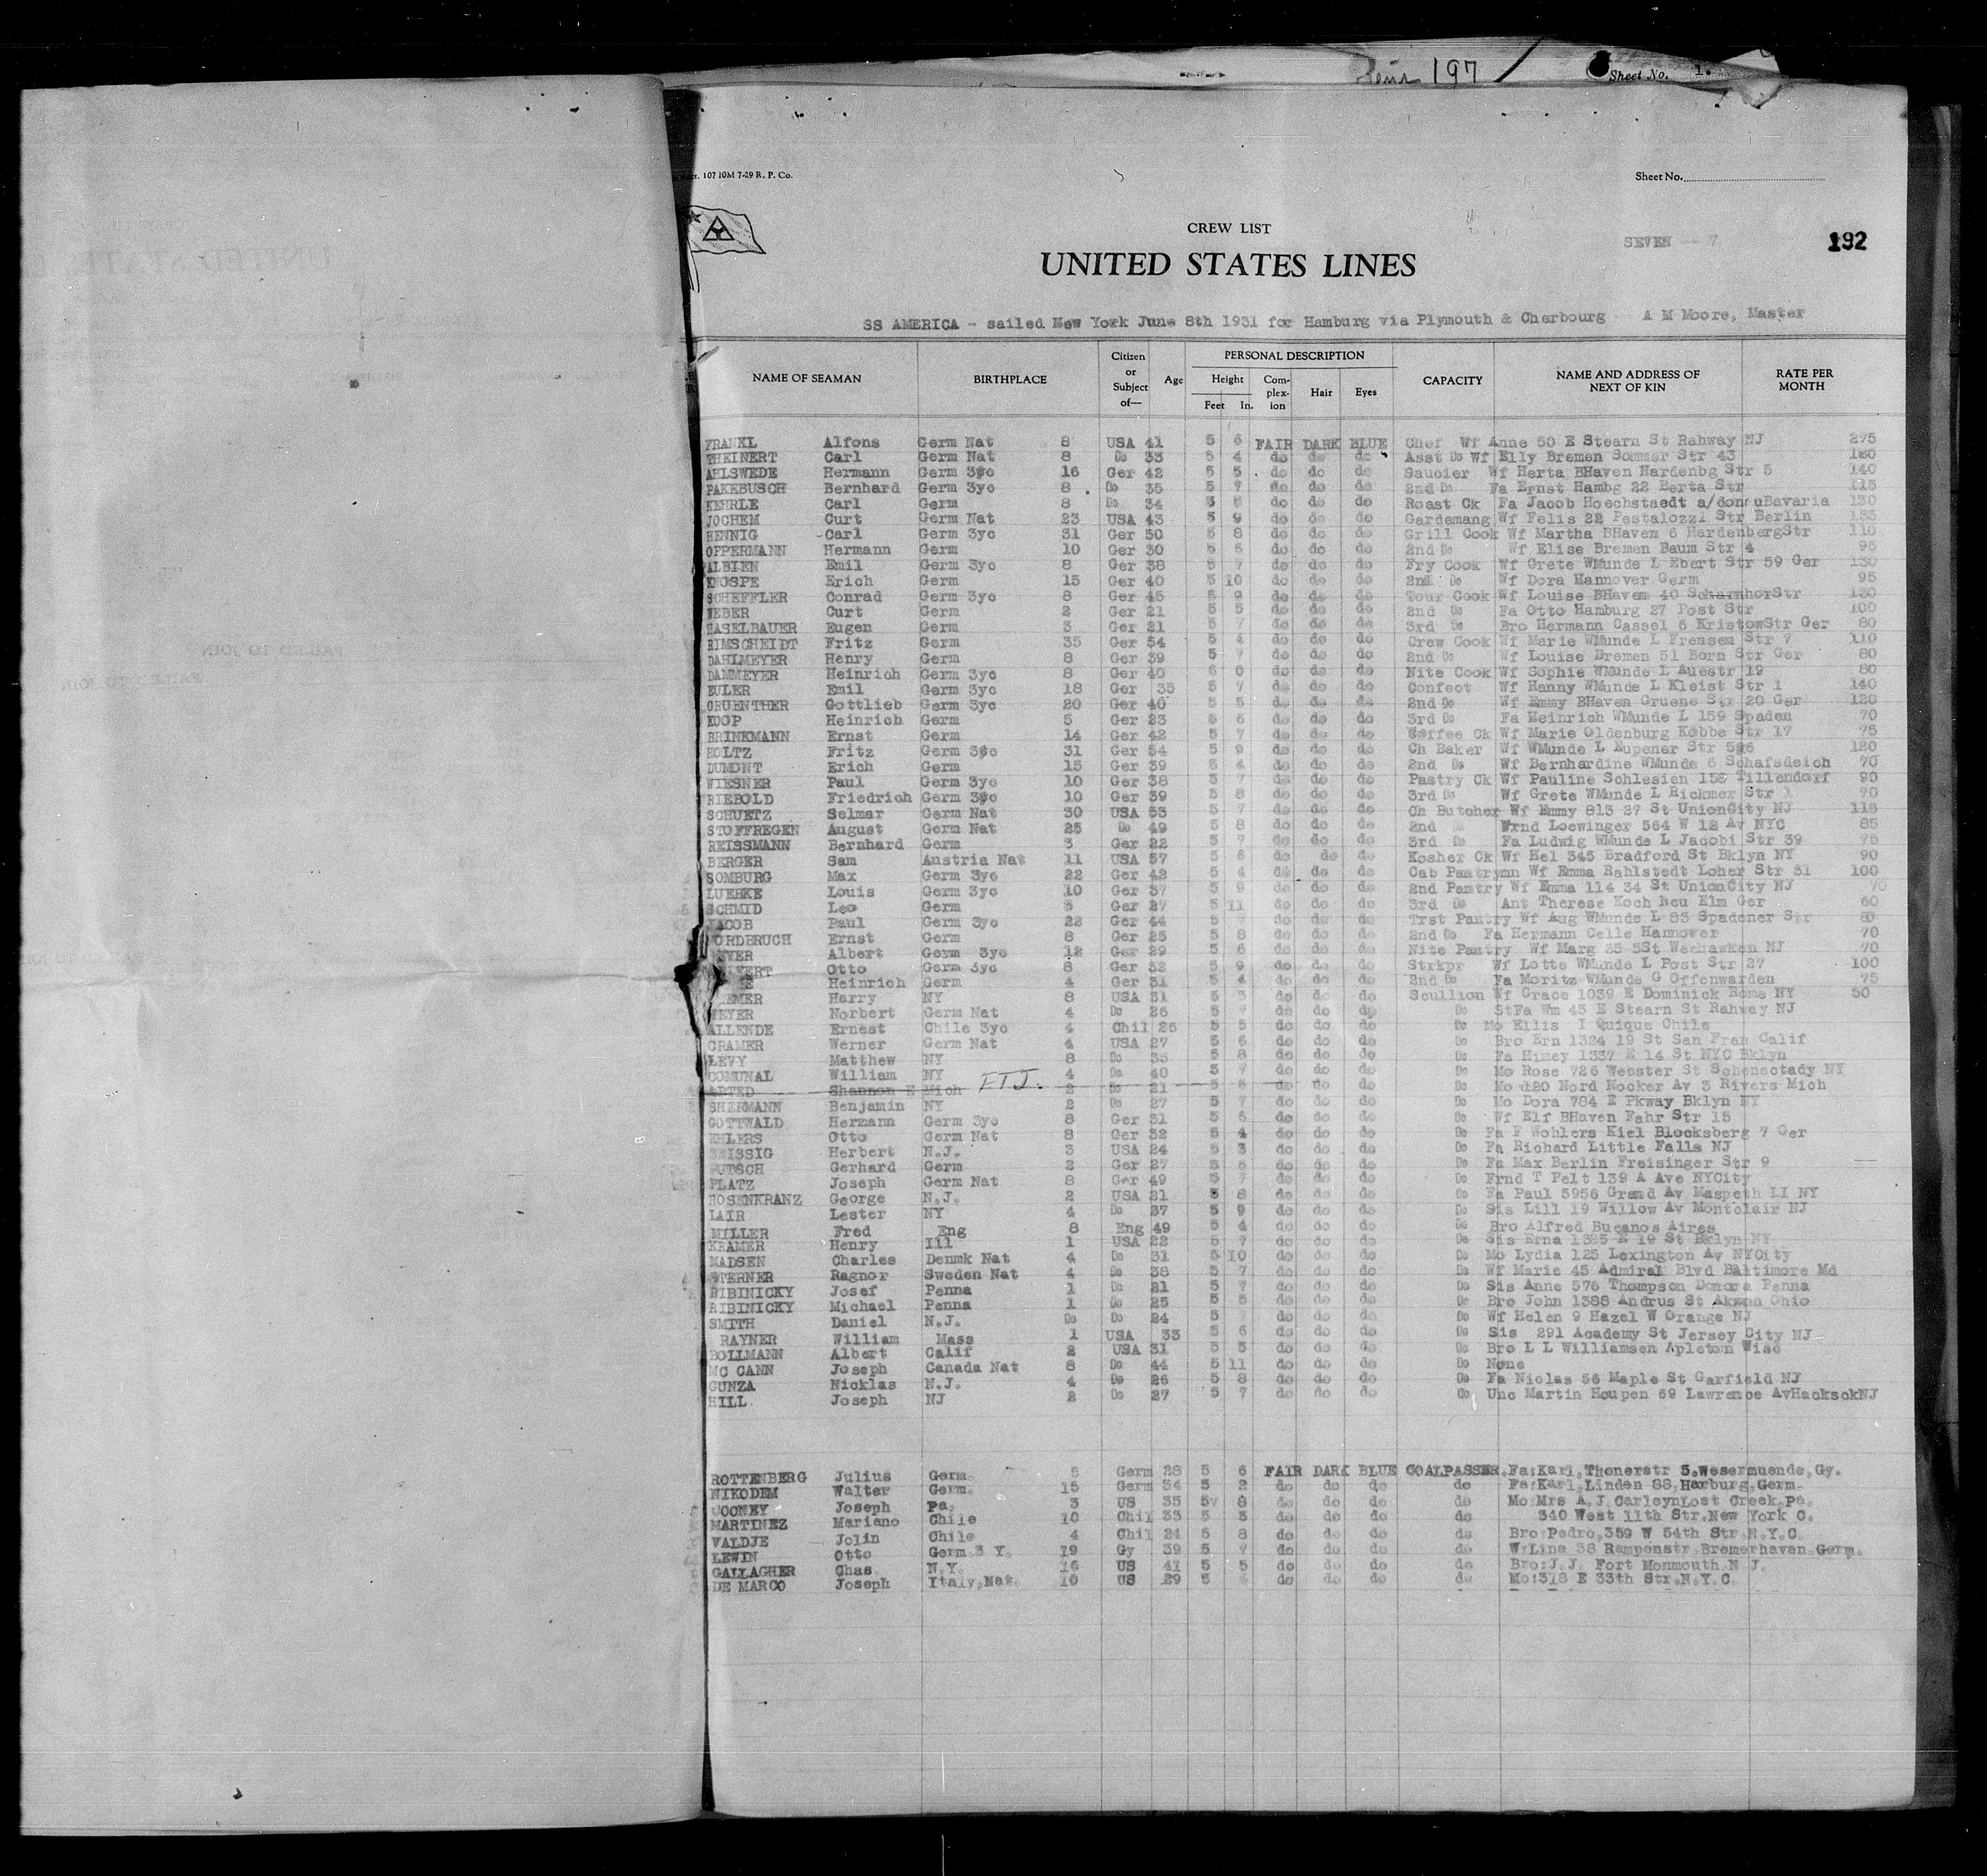 197
Sheet No. 1.
107 10M 7-29 R. P. Co.
Sheet No.
CREW LIST
SEVEN -- 7
192
UNITED STATES LINES
SS AMERICA - sailed New York June 8th 1931 for Hamburg via Plymouth & Cherbourg A M Moore, Master
NAME OF SEAMAN BIRTHPLACE Citizen or Subject of— Age PERSONAL DESCRIPTION Height Feet In. Complexion Hair Eyes CAPACITY NAME AND ADDRESS OF NEXT OF KIN RATE PER MONTH
FRANKL Alfons Germ Nat 8 USA 41 5 6 FAIR DARK BLUE Chef Wf Anne 50 E Stearn St Rahway NJ 275
THEINERT Carl Germ Nat 8 Do 33 5 4 do do do Asst Do Wf Elly Bremen Sommer Str 43 180
AHLSWEDE Hermann Germ 3yc 16 Ger 42 5 5 do do do Saucier Wf Herta BHaven Hardenbg Str 5 140
PAKEBUSCH Bernhard Germ 3yc 8 Do 35 5 7 do do do 2nd Do Fa Ernst Hambg 22 Berta Str 115
KEHRLE Carl Germ 8 Do 34 5 do do do Roast Ck Fa Jacob Hoechstaedt a/donauBavaria 130
JOCHEM Curt Germ Nat 23 USA 43 5 9 do do do Gardemang Wf Felis 22 Pestalozzi Str Berlin 135
HENNIG Carl Germ 3yc 31 Ger 50 5 8 do do do Grill Cook Wf Martha BHaven 6 HardenbergStr 110
OPPERMANN Hermann Germ 10 Ger 30 5 do do do 2nd Do Wf Elise Bremen Baum Str 4 95
ALBIEN Emil Germ 3yc 8 Ger 38 5 7 do do do Fry Cook Wf Grete WMunde L Ebert Str 59 Ger 130
KNOSPE Erich Germ 15 Ger 40 5 10 do do do 2nd Do Wf Dora Hannover Germ 95
SCHEFFLER Conrad Germ 3yc 8 Ger 45 5 9 do do do Tour Cook Wf Louise BHaven 40 ScharnhorStr 130
WEBER Curt Germ 2 Ger 21 5 5 do do do 2nd Do Fa Otto Hamburg 27 Post Str 100
HASELBAUER Eugen Germ 3 Ger 21 5 7 do do do 3rd Do Bro Hermann Cassel 6 KristowStr Ger 80
RIMSCHEIDT Fritz Germ 35 Ger 54 5 4 do do do Crew Cook Wf Marie WMunde L Frensem Str 7 110
DAHLMEYER Henry Germ 8 Ger 39 5 7 do do do 2nd Do Wf Louise Bremen 51 Born Str Ger 80
DAMMEYER Heinrich Germ 3yc 8 Ger 40 6 0 do do do Nite Cook Wf Sophie WMunde L Auestr 19 80
EULER Emil Germ 3yc 18 Ger 35 5 7 do do do Confect Wf Hanny WMunde L Kleist Str 1 140
GRUENTHER Gottlieb Germ 3yc 20 Ger 40 5 5 do do do 2nd Do Wf Emmy BHaven Gruene Str 20 Ger 120
KOOP Heinrich Germ 5 Ger 23 5 6 do do do 3rd Do Fa Heinrich WMunde L 159 Spaden 70
BRINKMANN Ernst Germ 14 Ger 42 5 7 do do do Coffee Ck Wf Marie Oldenburg Kobbe Str 17 75
HOLTZ Fritz Germ 3yc 31 Ger 54 5 9 do do do Ch Baker Wf WMunde L Eupener Str 120
DUMONT Erich Germ 15 Ger 39 5 4 do do do 2nd Do Wf Bernhardine WMunde 6 Schafsdeich 70
WIESNER Paul Germ 3yc 10 Ger 38 5 7 do do do Pastry Ck Wf Pauline Schlesien 158 Tillendorf 90
RIEBOLD Friedrich Germ 3yc 10 Ger 39 5 8 do do do 3rd Do Wf Grete WMunde L Rickmer Str 1 70
SCHUETZ Selmar Germ Nat 30 USA 53 5 7 do do do Ch Butcher Wf Emmy 813 27 St UnionCity NJ 115
STOFFREGEN August Germ Nat 25 Do 49 5 8 do do do 2nd Frnd Loewinger 564 W 12 Av NYC 85
REISSMANN Bernhard Germ 3 Ger 22 5 7 do do do 3rd Do Fa Ludwig WMunde L Jacobi Str 39 75
BERGER Sam Austria Nat 11 USA 57 5 6 do do do Kosher Ck Wf Hel 345 Bradford St Bklyn NY 90
SOMBURG Max Germ 3yc 22 Ger 42 5 4 do do do Cab Pantrymn Wf Emma Rahlstedt Loher Str 31 100
LUEBKE Louis Germ 3yc 10 Ger 37 5 9 do do do 2nd Pantry Wf Emma 114 34 St UnionCity NJ 70
SCHMID Leo Germ 5 Ger 27 5 11 do do do 3rd Do Ant Therese Koch Neu Elm Ger 60
JACOB Paul Germ 3yc 22 Ger 44 5 do do do Trst Pantry Wf Aug WMunde L 83 Spadener Str 80
NORDBRUCH Ernst Germ 8 Ger 25 5 8 do do do 2nd Do Fa Hermann Celle Hannover 70
MEYER Albert Germ 3yc 12 Ger 29 5 6 do do do Nite Pantry Wf Marg 35 5St Weehawken NJ 70
Otto Germ 3yc 8 Ger 32 5 9 do do do Strkpr Wf Lotte WMunde L Post Str 27 100
Heinrich Germ 4 Ger 31 5 4 do do do 2nd Do Fa Moritz WMunde G Offenwarden 75
Harry NY 8 USA 31 5 3 do do do Scullion Wf Grace 1039 E Dominick Rome NY 50
MEYER Norbert Germ Nat 4 Do 26 5 7 do do do Do StFa Wm 45 E Stearn St Rahway NJ
ALLENDE Ernest Chile 3yc 4 Chil 26 5 5 do do do Do Mo Ellis I Quique Chile
CRAMER Werner Germ Nat 4 USA 27 5 6 do do do Do Bro Ern 1324 19 St San Fran Calif
LEVY Matthew NY 8 Do 35 5 8 do do do Do Fa Himey 1337 E 14 St NYC Bklyn
COMUNAL William NY 4 Do 40 5 7 do do do Do Mo Rose 726 Webster St Schenectady NY
ARTED Shannon E Mich FTJ. 2 Do 21 5 6 do do do Do Mo 120 Nord Nocker Av 3 Rivers Mich
SHERMANN Benjamin NY 2 Do 27 5 7 do do do Do Mo Dora 784 E Pkway Bklyn NY
GOTTWALD Hermann Germ 3yc 8 Ger 31 5 6 do do do Do Wf Elf BHaven Fahr Str 15
EHLERS Otto Germ Nat 8 Ger 32 5 4 do do do Do Fa F Wohlers Kiel Blocksberg 7 Ger
Herbert N.J. 3 USA 24 5 3 do do do Do Fa Richard Little Falls NJ
Gerhard Germ 2 Ger 27 5 6 do do do Do Fa Max Berlin Freisinger Str 9
PLATZ Joseph Germ Nat 8 Ger 49 5 7 do do do Do Frnd T Pelt 139 A Ave NYCity
ROSENKRANZ George N.J. 2 USA 21 5 8 do do do Do Fa Paul 5956 Grand Av Maspeth LI NY
LAIR Lester NY 4 Do 37 5 9 do do do Do Sis Lill 19 Willow Av Montclair NJ
MILLER Fred Eng 8 Eng 49 5 4 do do do Do Bro Alfred Bueanos Aires
KRAMER Henry Ill 1 USA 22 5 7 do do do Do Sis Erna 1325 E 19 St Bklyn NY
MADSEN Charles Denmk Nat 4 Do 31 5 10 do do do Do Mo Lydia 125 Lexington Av NYCity
STERNER Ragnor Sweden Nat 4 Do 38 5 7 do do do Do Wf Marie 45 Admiral Blvd Baltimore Md
RIBINICKY Josef Penna 1 Do 21 5 7 do do do Do Sis Anne 576 Thompson Donora Penna
RIBINICKY Michael Penna 1 Do 25 5 5 do do do Do Bro John 1388 Andrus St Akron Ohio
SMITH Daniel N.J. Do Do 24 5 7 do do do Do Wf Helen 9 Hazel W Orange NJ
RAYNER William Mass 1 USA 33 5 6 do do do Do Sis 291 Academy St Jersey City NJ
BOLLMANN Albert Calif 2 USA 31 5 5 do do do Do Bro L L Williamsen Apleton Wisc
MC CANN Joseph Canada Nat 8 Do 44 5 11 do do do Do None
GUNZA Nicklas N.J. 4 Do 26 5 8 do do do Do Fa Niclas 56 Maple St Garfield NJ
HILL Joseph NJ 2 Do 27 5 7 do do do Do Unc Martin Houpen 69 Lawrence AvHacksckNJ
ROTTENBERG Julius Germ. Germ 28 5 6 FAIR DARK BLUE COALPASSER. Fa:Karl, Thonerstr 5. Wesermuende, Gy.
NIKODEM Walter Germ. 15 Germ 34 5 2 do do do do Fa:Karl, Linden 88, Harburg, Germ.
COONEY Joseph Pa. 3 US 35 5 8 do do do do Mo:Mrs A.J. CarleynLost Creek, Pa.
MARTINEZ Mariano Chile 10 Chil 33 5 5 do do do do 340 West 11th Str. New York C.
VALDJE Jolin Chile 4 Chil 24 5 8 do do do do Bro:Pedro, 359 W 54th Str. N.Y.C.
LEWIN Otto Germ 3 Y. 19 Gy 39 5 7 do do do do W:Lina 38 Rampenstr. Bremerhaven. Germ.
GALLAGHER Chas. N.Y. 16 US 41 5 5 do do do do Bro:J.J. Fort Monmouth N J.
DE MARCO Joseph Italy, Nat. 10 US 29 5 do do do do Mo:318 E 33th Str. N.Y.C.